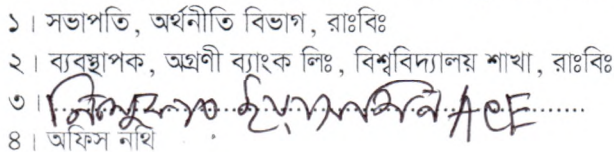 ১। সভাপতি, অর্থনীতি বিভাগ, রাঃবিঃ
২। ব্যবস্থাপক, অগ্রণী ব্যাংক লিঃ, বিশ্ববিদ্যালয় শাখা, রাঃবিঃ
৩।
৪। অফিস নথি